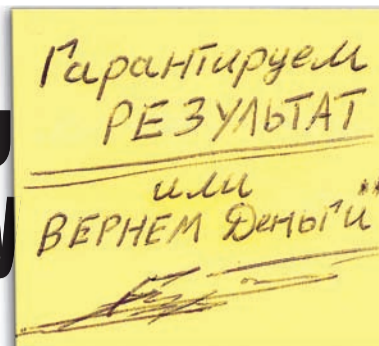 Гарантируем
РЕЗУЛЬТАТ
или
ВЕРНЕМ Деньги"